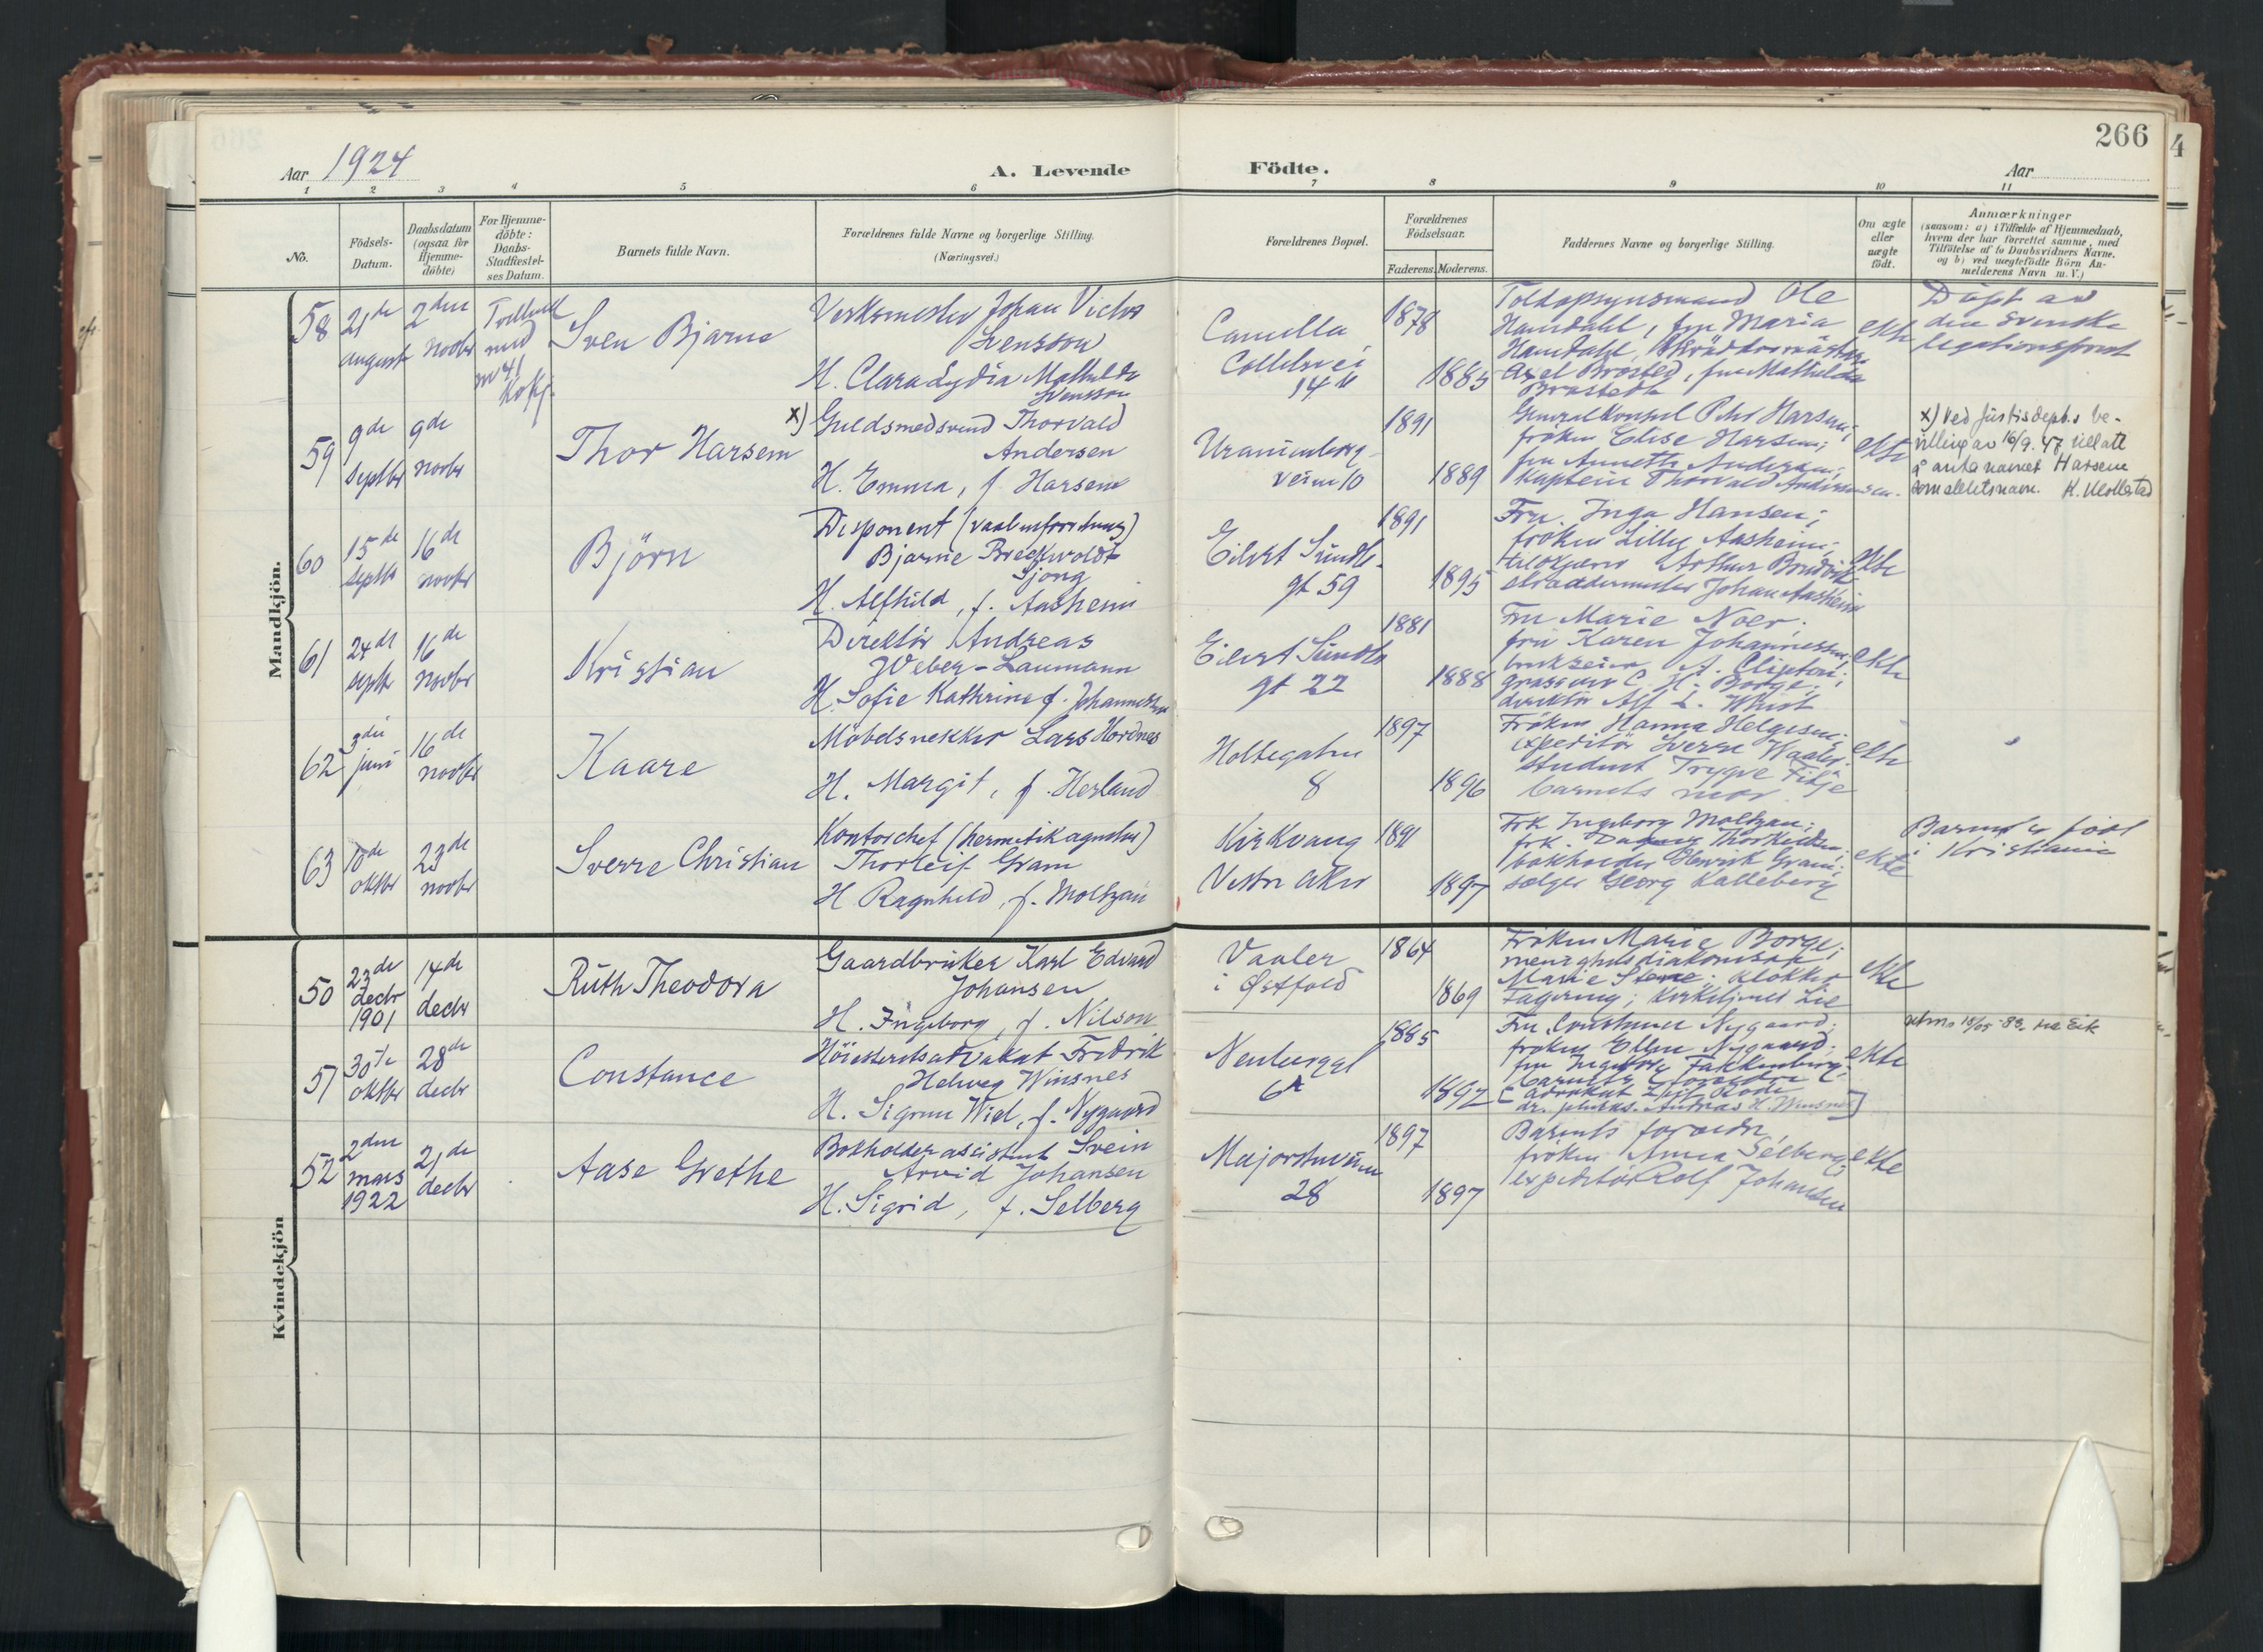 266
4
Aar 1924
A. Levende Födte.
Aar
1 2 3 4 5 6 7 8 9 10 11
No.
Födsels-
Datum.
Daabsdatum
(ogsaa for
Hjemme-
döbte)
For Hjemme-
döbte:
Daabs-
Stadfæstel-
ses Datum.
Barnets fulde Navn.
Forældrenes fulde Navne og borgerlige Stilling.
(Næringsvei.)
Forældrenes Bopæl.
Forældrenes
Födselsaar.
Faderens. Moderens.
Faddernes Navne og borgerlige Stilling.
Om ægte
eller
uægte
födt.
Anmærkninger
(saasom: a) i Tilfælde af Hjemmedaab,
hvem der har forrettet samme, med
Tilföielse af to Daabsvidners Navne,
og b) ved uægtefödte Börn An-
melderens Navn m. V.)
Mandkjön.
58
21de
august
2den
novbr
Sven Bjarne
Verksmester Johan Victor
Svensson
H. Clara Lydia Mathilda
Svensson
Camilla
Colletsvei
14
1878
1885
Toldopsynsmand Ole
Hamdahl, fru Maria
Hamdahl,
Axel Brosted, fru Mathilda
Brostedt
ekte
Döpt av
den svenske
legationsprest
59
9de
septbr
9de
novbr
Thor Harsem
x) Guldsmedsvend Thorvald
Andersen
H. Emma, f. Harsem
Uranienborg-
veien 10
1891
1889
Generalkonsul Peter Harsem;
fröken Elise Harsem;
fru Annette Andersen;
kaptein Thorvald Andersen.
ekte
x) Ved Justisdept.s be-
villing av 16/9.47 till att
å anta navnet Harsem
som slektsnavn. K. Mollestad
60
15de
septbr
16de
novbr
Björn
Disponent (vaabenforretning)
Bjarne Breckwoldt
Sjong
H. Alfhild, f. Aasheim
Eilert Sundts
gt 59
1891
1895
Fru Inga Hansen;
fröken Lilly Aasheim;
Arthur
skraddermester Johan Aasheim
ekte
61
24de
septbr
16de
novbr
Kristian
Direktör Andreas
Weber-Laumann
H. Sofie Kathrine f. Johannessen
Eilert Sundts
gt 22
1881
1888
Fru Marie Noer.
fru Karen Johannessen;
brukseier A. Clipton;
grosserer C. H. Borge;
direktör Alf L. Whist
ekte
62
3die
juni
16de
novbr
Kaare
Möbelsnekker Lars Hordnes
H. Margit, f. Hesland
Holtegaten
8
1897
1896
Fröken Hanna Helgesen;
expeditör Sverre Waaler;
student Trygve Fitje
barnets mor
ekte
63
10de
oktbr
23de
novbr
Sverre Christian
Kontorchef (hermetikagentur)
Thorleif Gram
H Ragnhild, f. Moltzau
Kirkvang
Vestre Aker
1891
1897
Frk Ingeborg Moltzau;
frk. Dagny Thorkildsen;
bokholder Henrik Gram;
sælger Georg Kalleberg
ekte
Barnet er född
i Kristiania
Kvindekjön
50
23de
decbr
1901
14de
decbr
Ruth Theodora
Gaardbruker Karl Edvard
Johansen
H. Ingeborg, f. Nilson
Vaaler
i Østfold
1864
1869
Fröken Marie Borge;
menighetsdiakonisse
Marie Stene; klokker
Fagerung; kirketjener Lie
ekte
51
30te
oktbr
28de
decbr
Constance
Höiesteretsadvokat Fredrik
Helweg Winsnes
H. Sigrun Wiel, f. Nygaard
Neubergsgt
6A
1885
1892
Fru Constance Nygaard;
fröken Ellen Nygaard;
fru Ingeborg Falkenberg;
barnets forældre
[advokat Leif Rode
dr. philos. Andreas H. Winsnes]
ekte
52
2den
mars
1922
21de
decbr
Aase Grethe
Bokholderassistent Svein
Arvid Johansen
H. Sigrid, f. Selberg
Majorstuveien
28
1897
1897
Barnets forældre,
fröken Anna Selberg;
expeditör Rolf Johansen
ekte